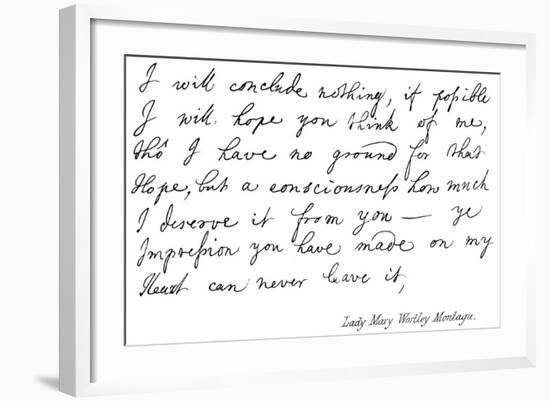 I will conclude nothing, if poſsible
I will hope you think of me,
tho I have no ground for that
Hope, but a consciousneſs how much
I deserve it from you — ye
Impreſsion you have made on my
Heart can never leave it,
Lady Mary Wortley Montagu.